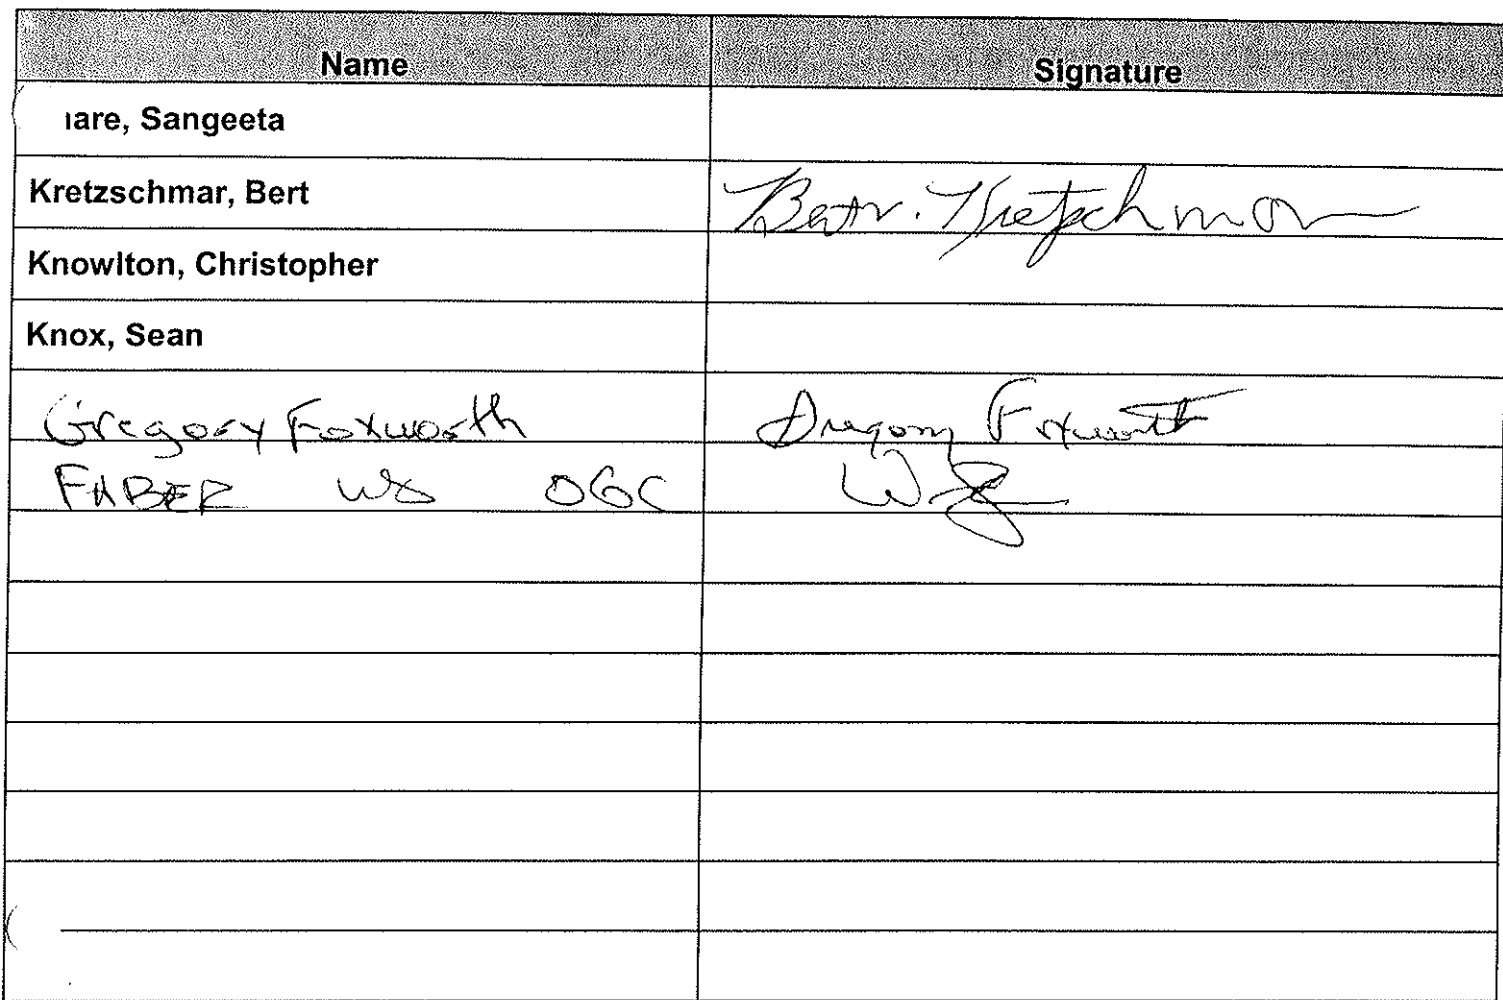 Name Signature
Sangeeta
Kretzschmar, Bert Bert Kretzschmar
Knowlton, Christopher
Knox, Sean
Gregory Foxworth Gregory Foxworth
FABER WS OGC